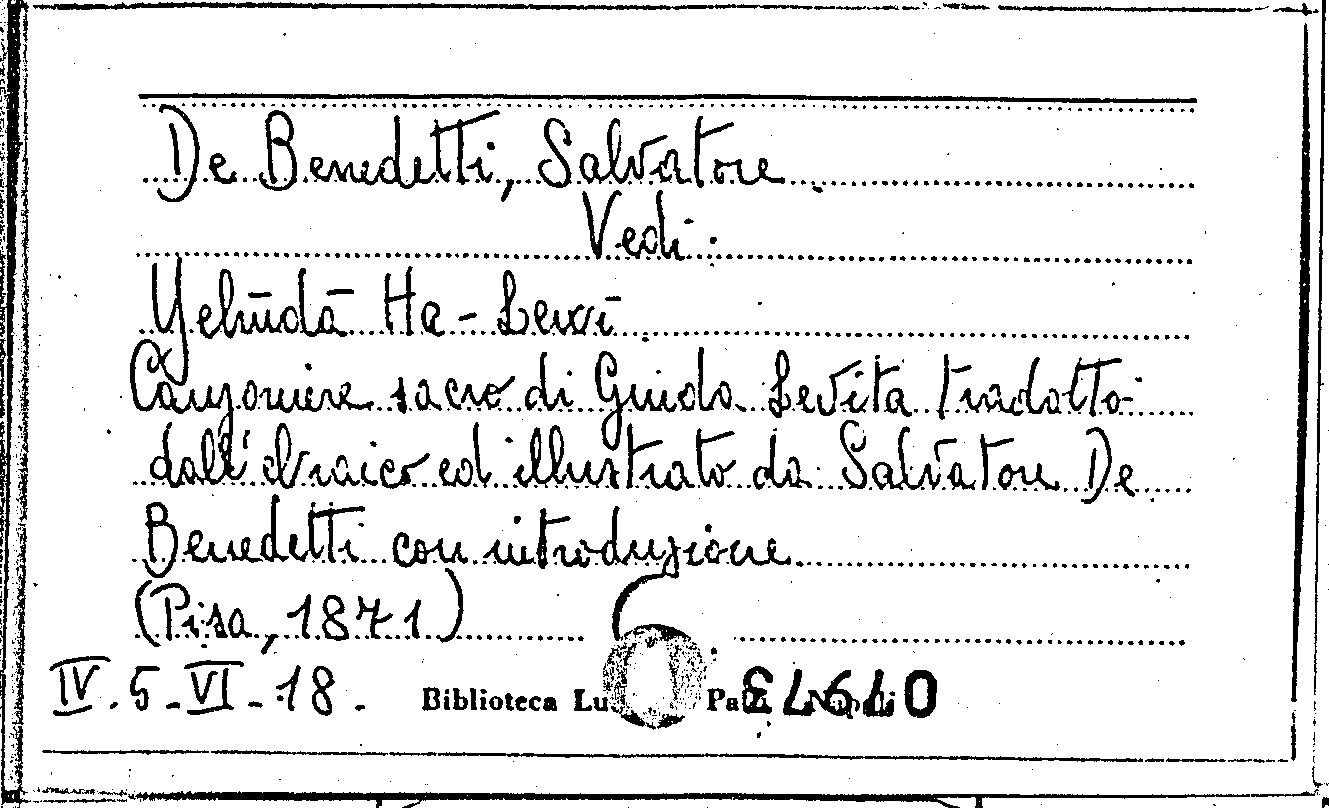 De Benedetti, Salvatore
Vedi:
Yehūdā Ha-Lewī
Canzoniere sacro di Giuda Levita tradotto
dall'ebraico ed illustrato da Salvatore De
Benedetti con introduzione.
(Pisa, 1871)
IV.5-VI-18. Biblioteca